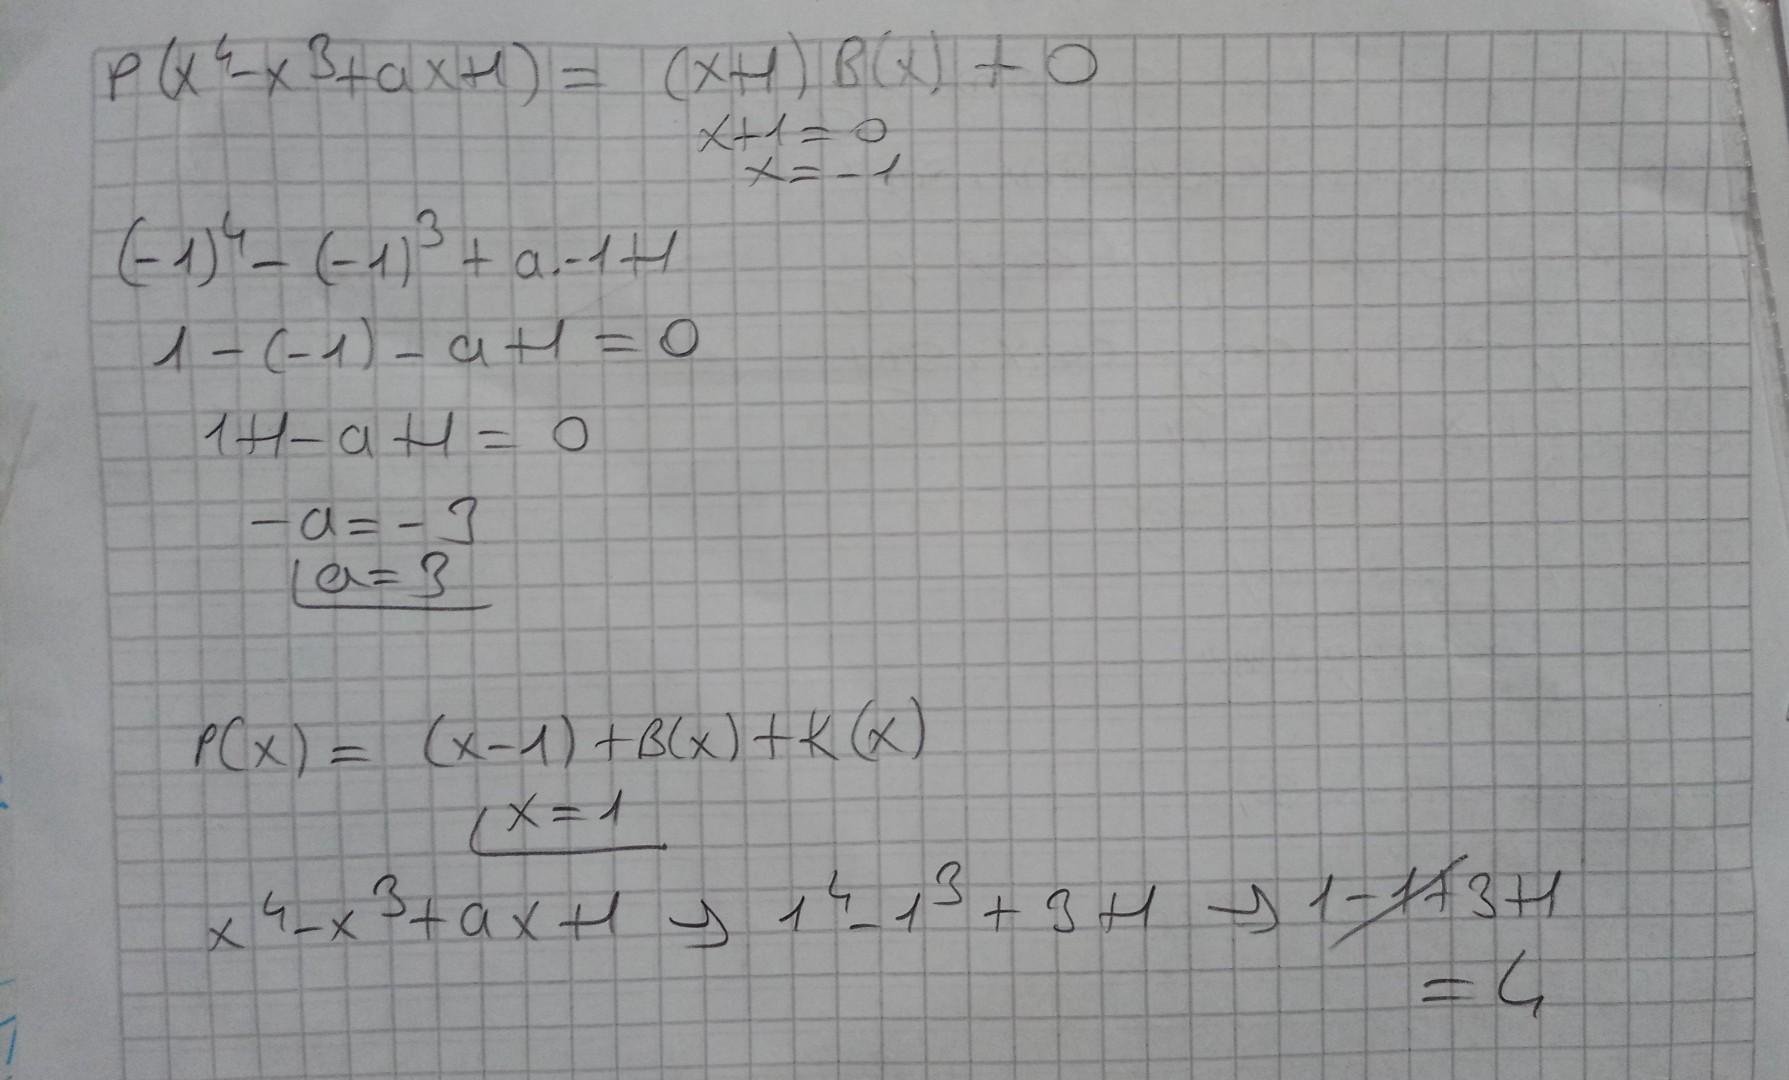 P(x⁴-x³+ax+1) = (x+1) B(x) + 0
x+1=0
x=-1
(-1)⁴ - (-1)³ + a.-1+1
1 - (-1) - a+1 = 0
1+1-a+1 = 0
-a = -3
a=3
P(x) = (x-1) + B(x) + K(x)
x=1
x⁴-x³+ax+1 → 1⁴-1³+3+1 → 1-1+3+1
= 4